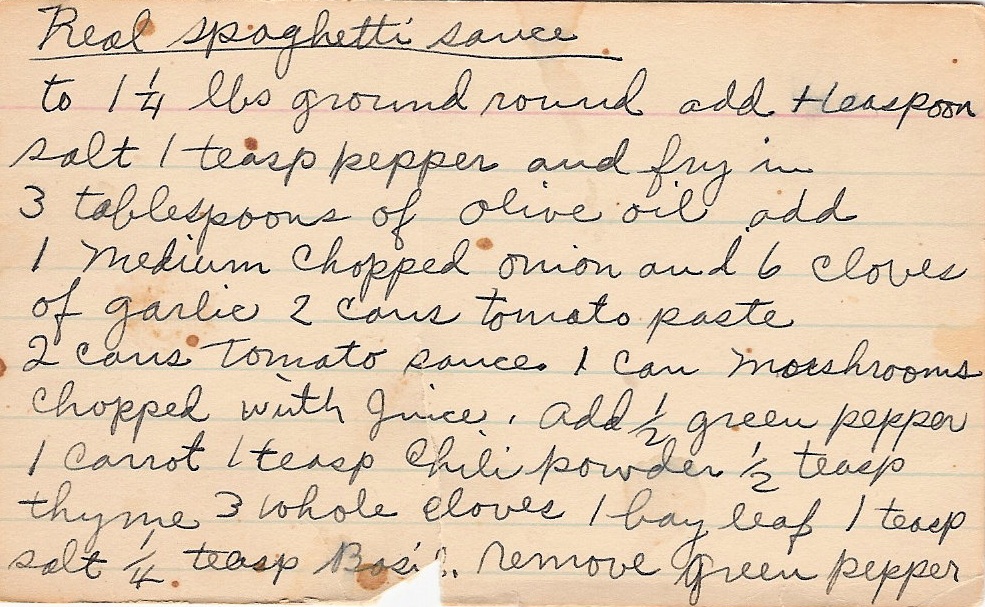 Real spaghetti sauce
to 1 1/4 lbs ground round add 1 teaspoon
salt 1 teasp pepper and fry in
3 tablespoons of olive oil add
1 Medium Chopped onion and 6 cloves
of garlic 2 cans tomato paste
2 cans Tomato sauce. 1 Can Moushrooms
Chopped with Juice. Add 1/2 green pepper
1 Carrot 1 teasp Chili powder 1/2 teasp
thyme 3 whole cloves 1 bay leaf 1 teasp
salt 1/4 teasp Basil. remove green pepper